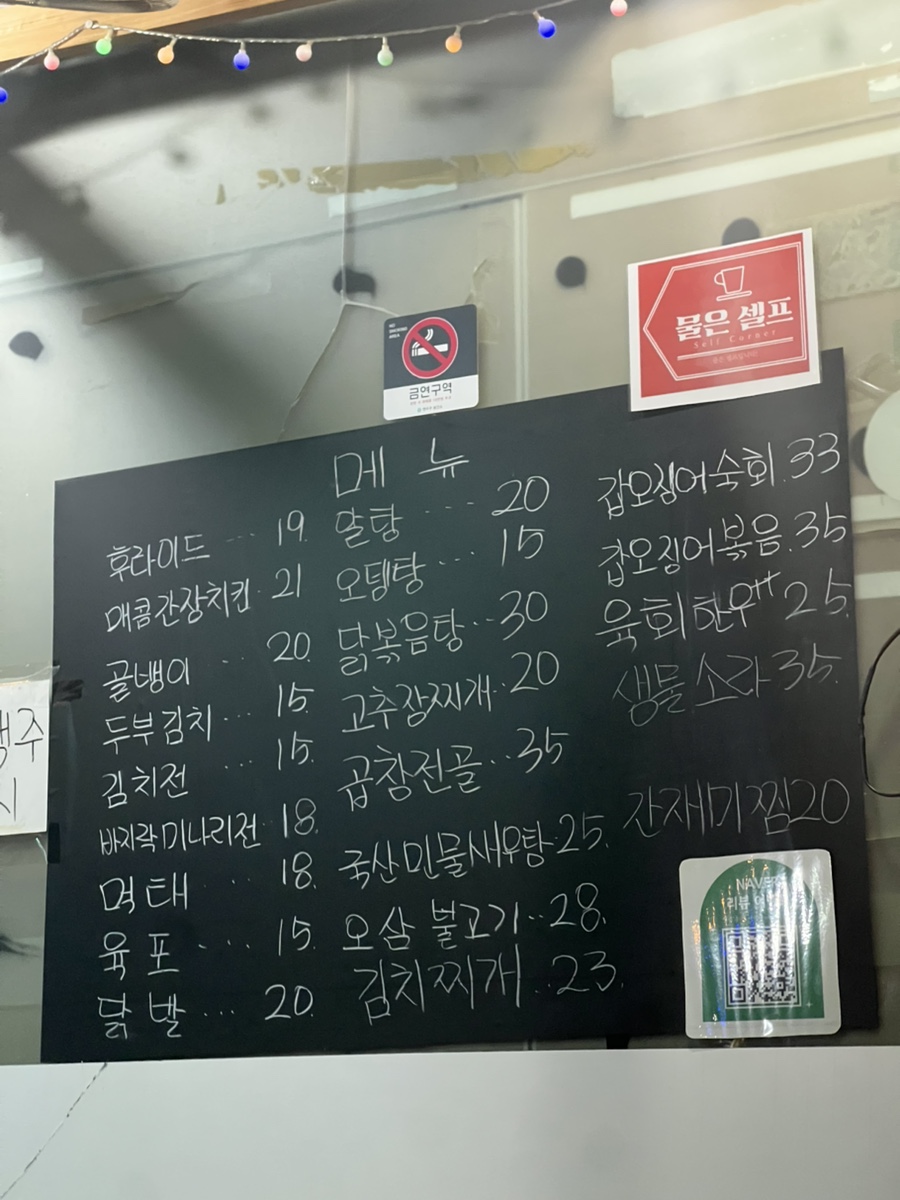 NO
SMOKING
AREA
금연구역
물은 셀프
Self Corner
메 뉴
후라이드 ... 19
매콤간장치킨. 21
골뱅이 ... 20.
두부김치 ... 15.
김치전 ... 15.
바지락미나리전 18.
먹태 ... 18.
육포 .... 15.
닭발 ... 20.
알탕 .... 20
오뎅탕 ... 15
닭볶음탕..30
고추장찌개..20
곱창전골..35
국산민물새우탕.25.
오삼불고기..28.
김치찌개..23.
갑오징어숙회.33
갑오징어볶음.35
육회한우++ 25.
생물소라 35.
간재미찜20
NAVER
리뷰
주